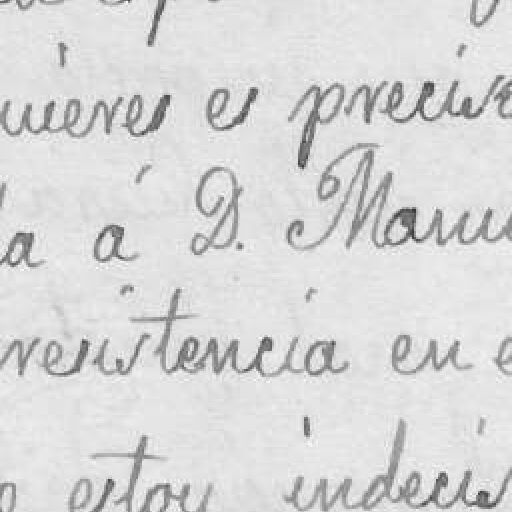 uieres es preciso
la á D. Manu
resistencia en e
o estoy indecis